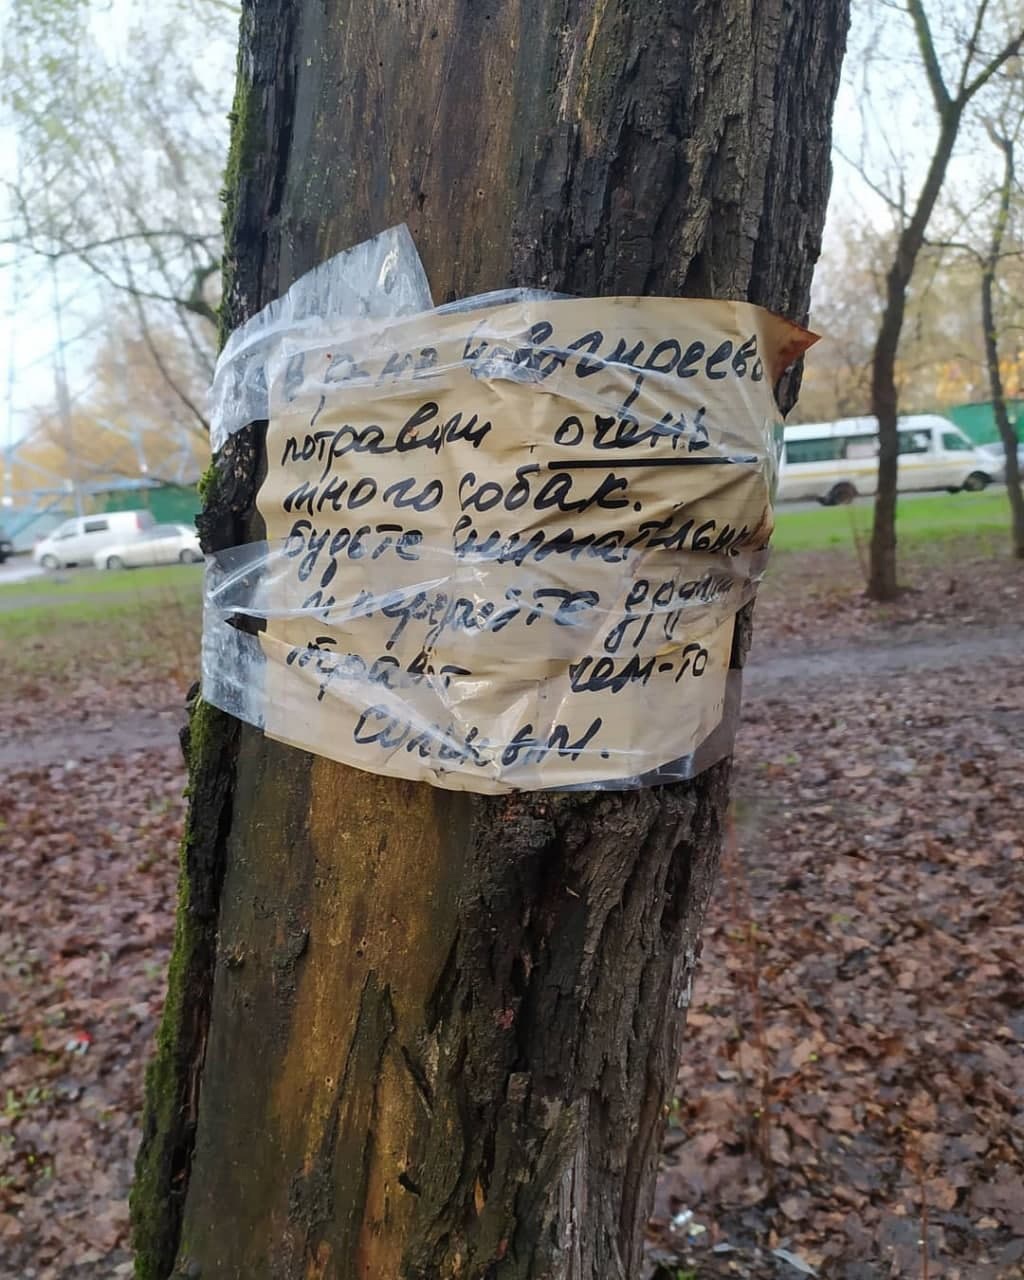 В р-не Новогиреево
потравили очень
много собак.
будьте внимательны
и передайте другим
травят чем-то
сильным.